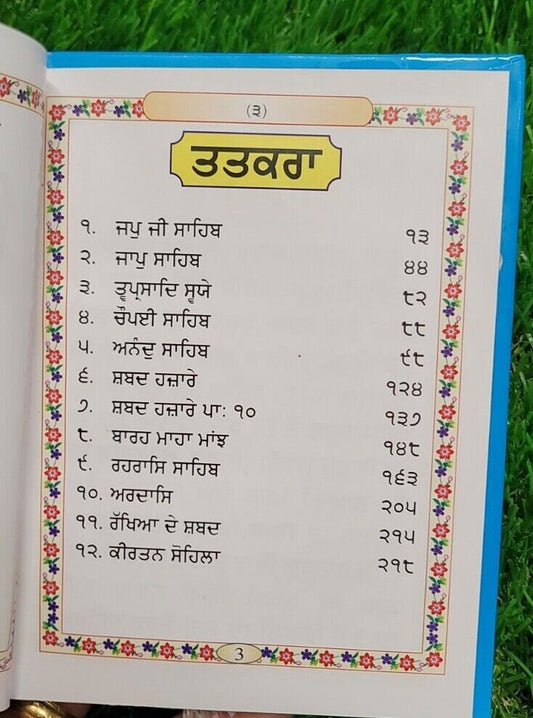 (੩)
ਤਤਕਰਾ
੧. ਜਪੁ ਜੀ ਸਾਹਿਬ ੧੩
੨. ਜਾਪੁ ਸਾਹਿਬ ੪੪
੩. ਤ੍ਵਪ੍ਰਸਾਦਿ ਸ੍ਵਯੇ ੮੨
੪. ਚੌਪਈ ਸਾਹਿਬ ੮੮
੫. ਅਨੰਦੁ ਸਾਹਿਬ ੯੮
੬. ਸ਼ਬਦ ਹਜ਼ਾਰੇ ੧੨੪
੭. ਸ਼ਬਦ ਹਜ਼ਾਰੇ ਪਾ: ੧੦ ੧੩੭
੮. ਬਾਰਹ ਮਾਹਾ ਮਾਂਝ ੧੪੮
੯. ਰਹਰਾਸਿ ਸਾਹਿਬ ੧੬੩
੧੦. ਅਰਦਾਸਿ ੨੦੫
੧੧. ਰੱਖਿਆ ਦੇ ਸ਼ਬਦ ੨੧੫
੧੨. ਕੀਰਤਨ ਸੋਹਿਲਾ ੨੧੮
3